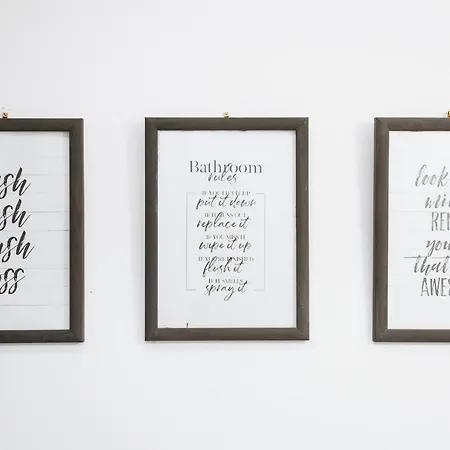 sh
sh
ush
oss
Bathroom
rules
IF YOU LIFT IT UP
put it down
IF IT RUNS OUT
replace it
IF YOU MISS IT
wipe it up
IF YOU'RE FINISHED
flush it
IF IT SMELLS
spray it
look
mi
REM
you
that
AWES